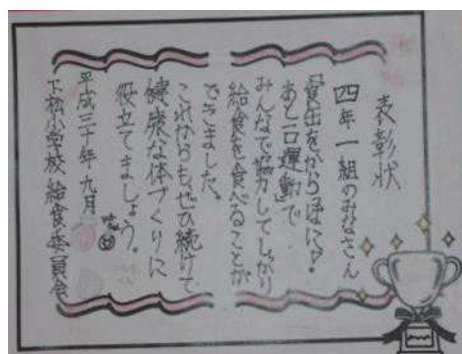 表彰状
四年一組のみなさん
「食缶をからっぽに♪
あと一口運動」で
みんなで協力してしっかり
給食を食べることが
できました。
これからも、ぜひ続けて
健康な体づくりに
役立てましょう。
平成三十年九月
下松小学校 給食委員会